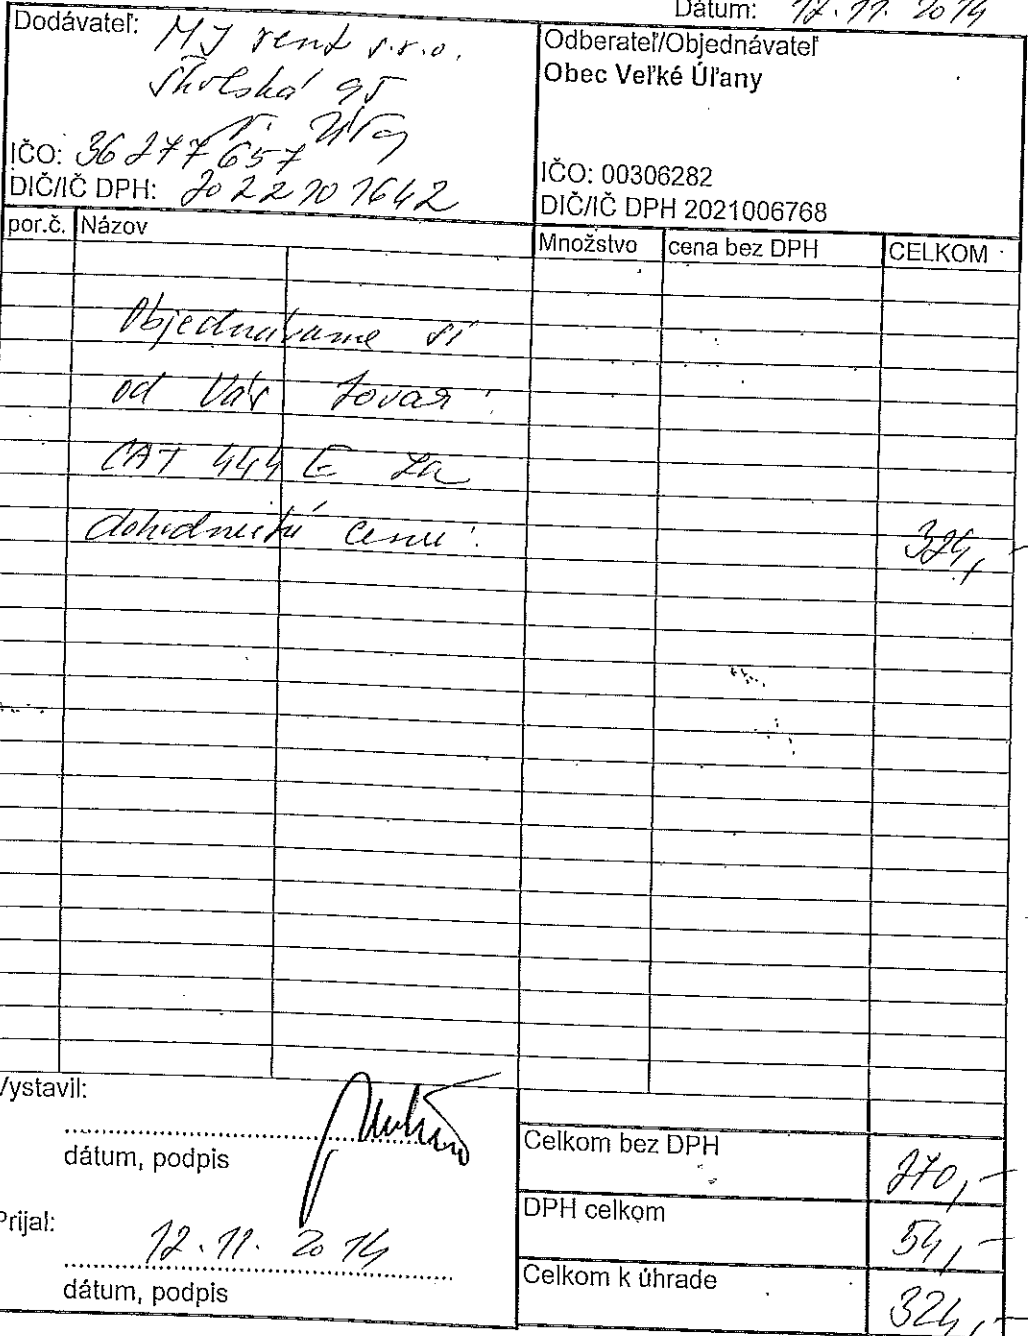 Dátum: 12.11. 2014
Dodávateľ: MJ rent s.r.o.
Školská 95
IČO: 36277657
DIČ/IČ DPH: 2022101642
Odberateľ/Objednávateľ
Obec Veľké Úľany
IČO: 00306282
DIČ/IČ DPH 2021006768
por.č. Názov Množstvo cena bez DPH CELKOM
Objednávame si
od Vás tovar:
CAT 444 E za
dohodnutú cenu: 324,-
Vystavil:
dátum, podpis
Celkom bez DPH 270,-
DPH celkom 54,-
Prijal: 12.11. 2014
dátum, podpis
Celkom k úhrade 324,-